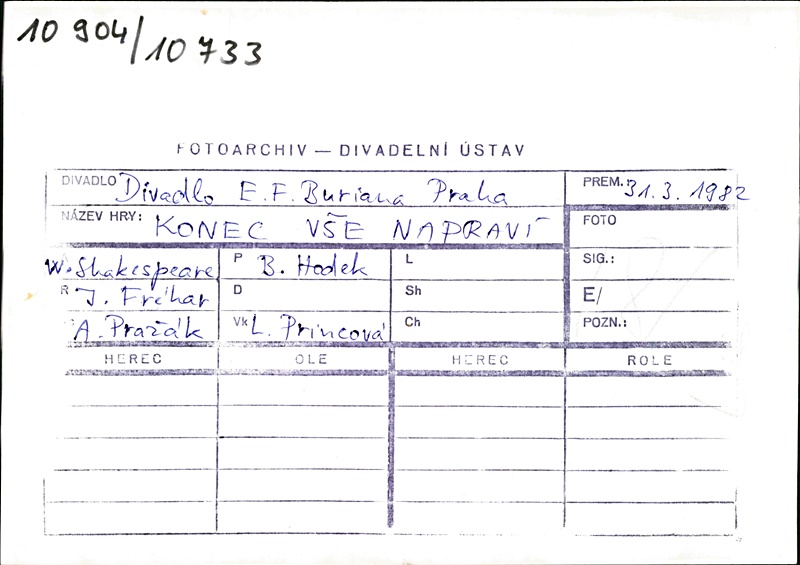 10 904/10 733
FOTOARCHIV — DIVADELNÍ ÚSTAV
DIVADLO Divadlo E.F. Buriana Praha PREM.: 31.3.1982
NÁZEV HRY: KONEC VŠE NAPRAVÍ FOTO
W. Shakespeare P B. Hodek L SIG.:
R J. Fréhar D Sh E/
A. Pražák Vk L. Princová Ch POZN.:
HEREC OLE HEREC ROLE